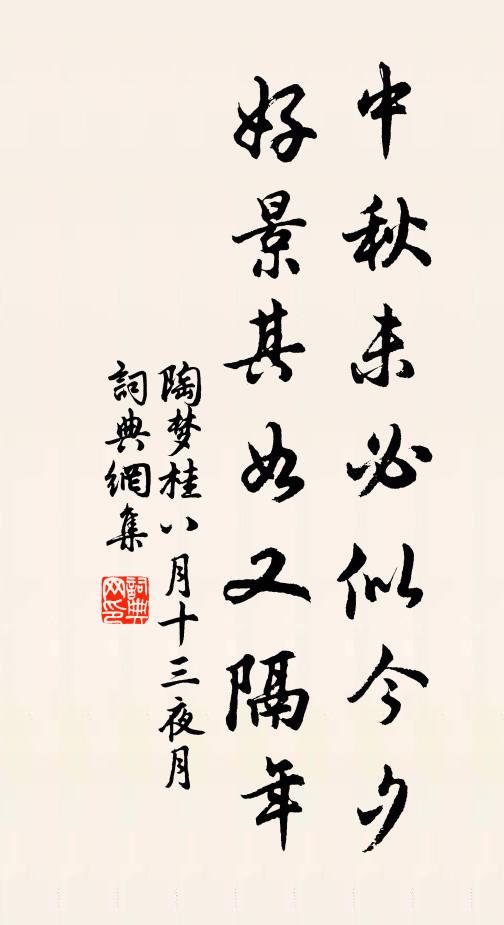 中秋未必似今夕
好景其如又隔年
陶梦桂八月十三夜月
詞典網集
詞典网印